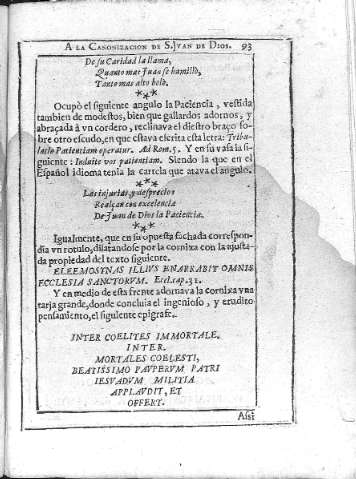 A LA CANONIZACION DE S. JVAN DE DIOS. 93
De su Caridad la llama,
Quanto mas Juan se humilló,
Tanto mas alto boló.
***
Ocupò el siguiente angulo la Paciencia, vestida
tambien de modestos, bien que gallardos adornos, y
abraçada à vn cordero, reclinava el diestro braço so-
bre otro escudo, en que estava escrita esta letra: Tribu-
latio Patientiam operatur. Ad Rom. 5. Y en su vasa la si-
guiente: Induite vos patientiam. Siendo la que en el
Español idioma tenia la cartela que atava el angulo.
***
Las injurias, y desprecios
Realçan con excelencia
De Juan de Dios la Paciencia.
***
Igualmente, que en su opuesta fachada correspon-
dia vn rotulo, dilatandose por la cornixa con la ajusta-
da propiedad del texto siguiente.
ELEEMOSYNAS ILLIVS ENARRABIT OMNIS
ECCLESIA SANCTORVM. Eccl. cap. 31.
Y en medio de esta frente adornava la cornixa vna
tarja grande, donde concluia el ingenioso, y erudito
pensamiento, el siguiente epigrafe.
INTER COELITES IMMORTALE.
INTER.
MORTALES COELESTI,
BEATISSIMO PAVPERVM PATRI
IESVADVM MILITIA
APPLAVDIT, ET
OFFERT.
Assi